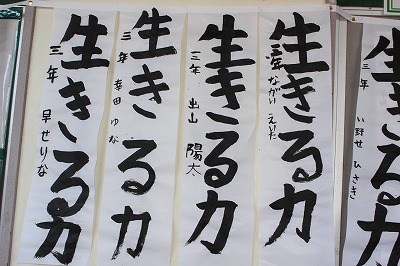 生きる力
三年 い野せ ひさき
生きる力
三年 ながい えいた
生きる力
三年 出山 陽太
生きる力
三年 幸田 ゆな
生きる力
三年 早せりな